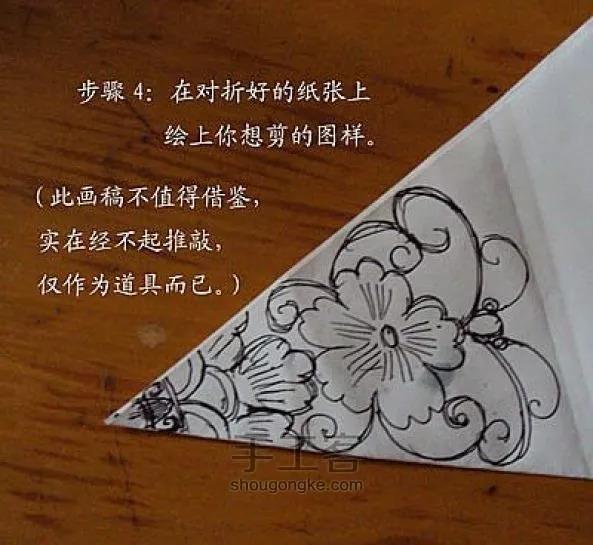 步骤 4：在对折好的纸张上
绘上你想剪的图样。
（此画稿不值得借鉴，
实在经不起推敲，
仅作为道具而已。）
手工客
shougongke.com